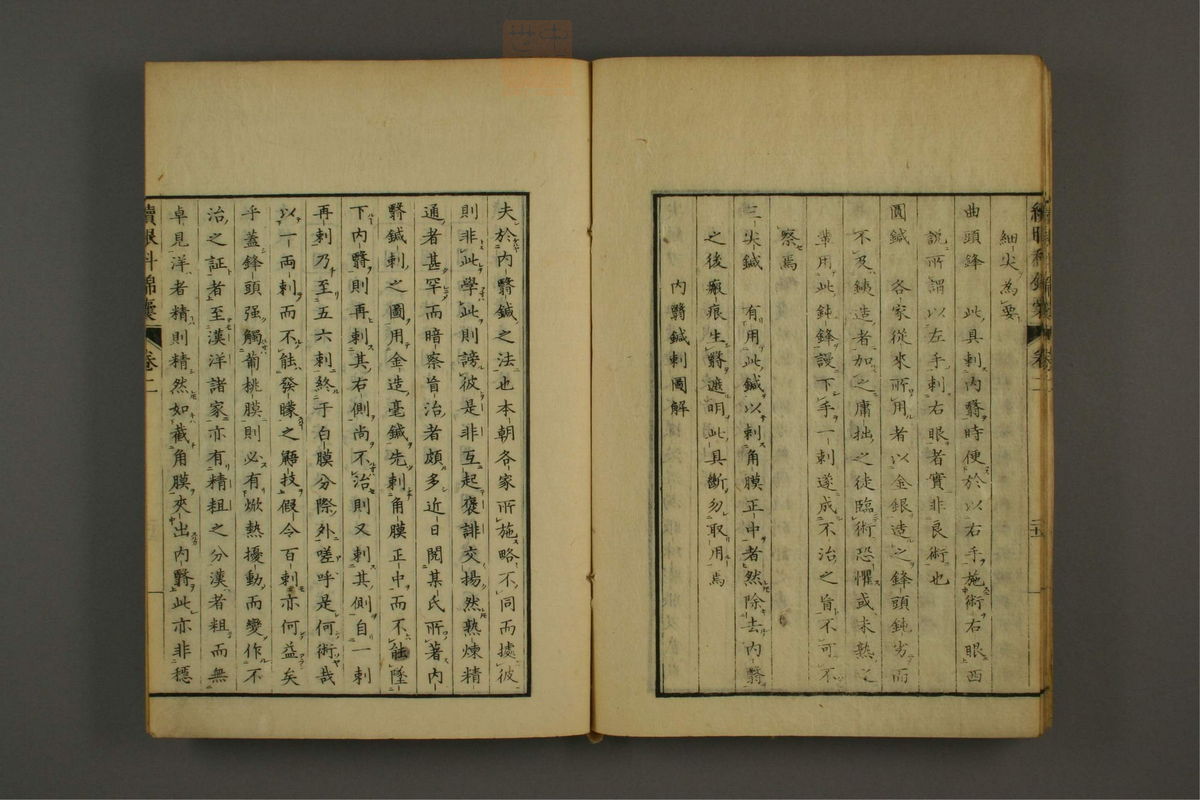 細尖爲要
曲頭鋒 此具刺內翳時便於以右手施術右眼西
說所謂以左手刺右眼者實非良術也
圓鍼 各家從來所用者以金銀造之鋒頭鈍劣而
不及鐵造者加之庸拙之徒臨術恐懼或未熟之
輩用此鈍鋒謾下手一刺遂成不治之旨不可不
察焉
三尖鍼 有用此鍼以刺角膜正中者然除去內翳
之後瘢痕生翳遮明此具斷勿取用焉
內翳鍼刺圖解
夫於內翳鍼之法也本朝各家所施略不同而據彼
則非此學此則謗彼是非互起褒誹交揚然熟煉精
通者甚罕而暗察旨治者頗多近日閱某氏所著內
翳鍼刺之圖用金造毫鍼先刺角膜正中而不能墜
下內翳則再刺其右側尚不治則又刺其側自一刺
再刺乃至五六刺終于白膜分際外嗟呼是何術哉
以一兩刺而不能發矇之技假令百刺亦何益矣
乎蓋鋒頭强觸葡桃膜則必有焮熱擾動而變作不
治之証者至漢洋諸家亦有精粗之分漢者粗而無
卓見洋者精則精然如截角膜夾出內翳此亦非穩
續眼科錦囊 卷二